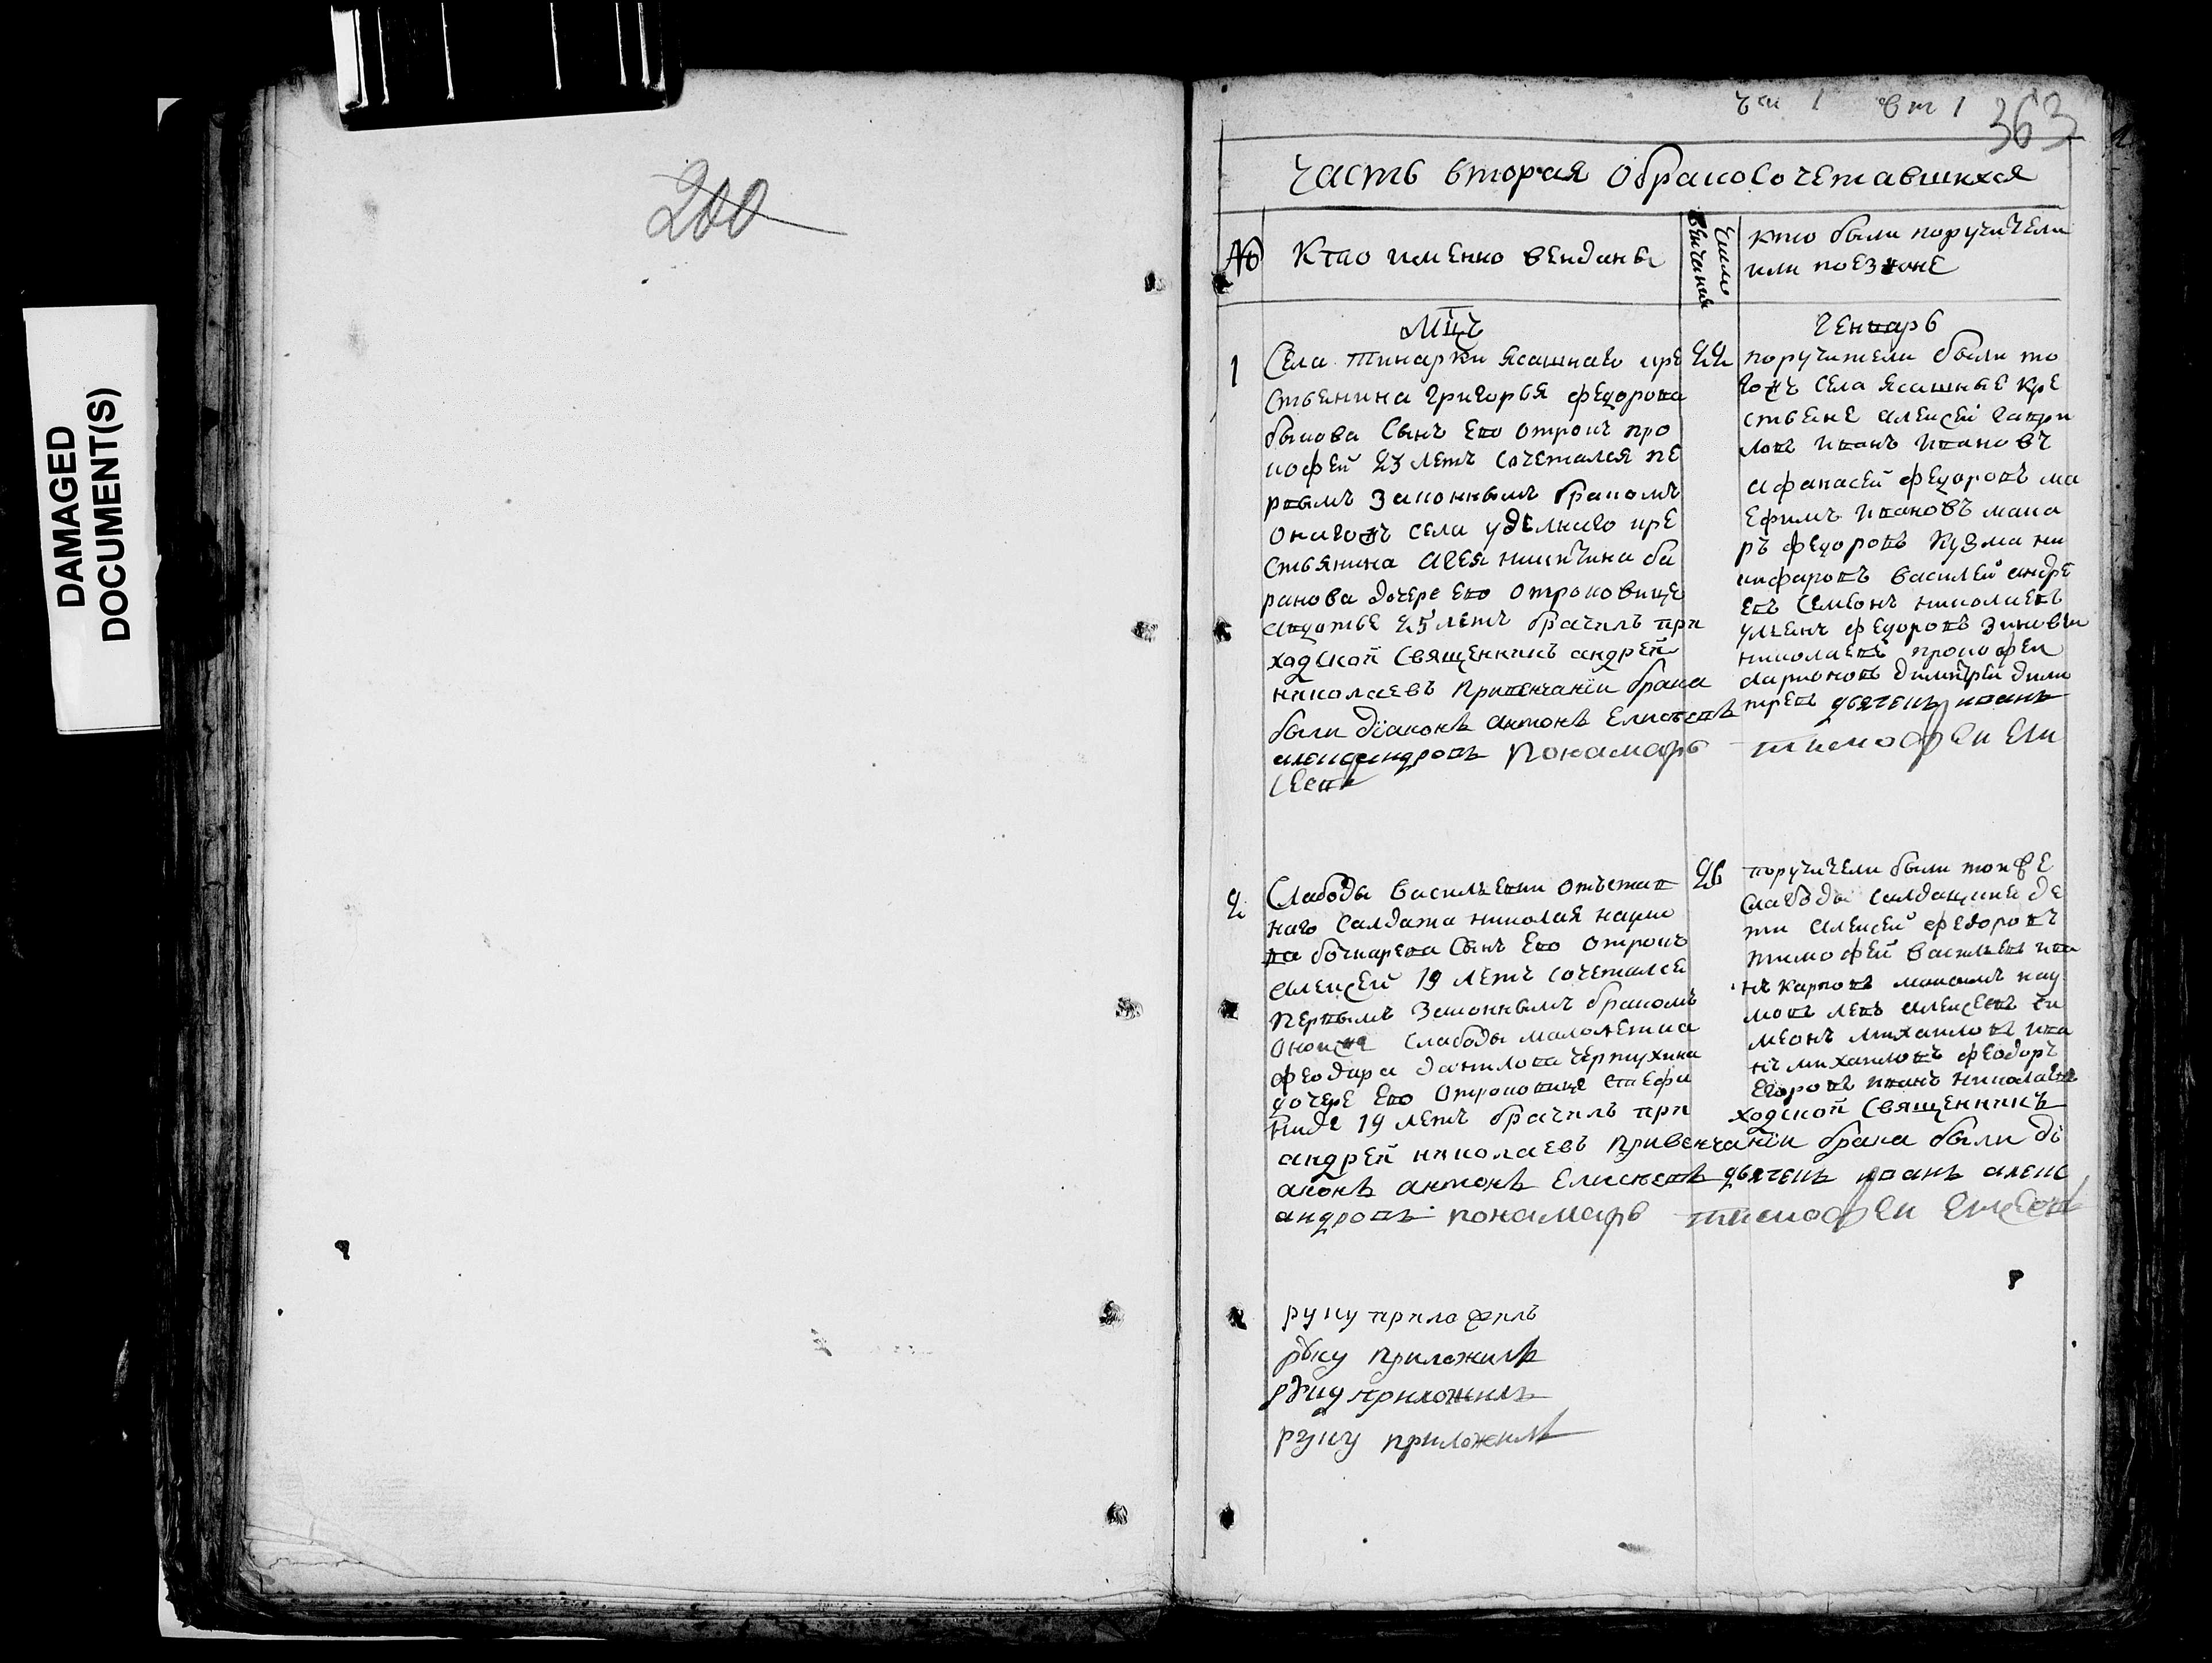 DAMAGED
DOCUMENT(S)
200
363
часть вторая обракосочетавшихся
№
Кто именно венчаны
число
венчания
кто были поручители
или поезжане
мцъ
генварь
1
Села тинарки ясашнаго кре
ственина григорья федорова
быкова сынъ его отрокъ про
кофей 23 летъ сочетался пе
рвымъ законнымъ бракомъ
онагожъ села уделнаго кре
стьянина агея никитина ба
ранова дочере его отроковице
авдотье 25 летъ брачилъ при
ходской священникъ андрей
николаевъ привенчании брака
были дiаконъ антонъ Елисеевъ
александровъ понамарь
сеевъ
22
поручители были то
гожъ села ясашные кре
ствене алексей гаври
ловъ иванъ ивановъ
афанасей федоровъ ма
ефимъ ивановъ мака
ръ федоровъ кузма ни
кифаровъ василей андре
евъ семионъ николаевъ
улъянъ федоровъ зиновеи
николаевъ прокофеи
ларионовъ димитрей дими
треевъ дьячекъ иванъ
тимофеи Ели
2
Слабоды василъевки отъстав
наго салдата николая наумо
ва бочкарева сынъ его отрокъ
алексей 19 летъ сочетался
первымъ законнымъ бракомъ
оноиже слабоды малолетка
феодора данилова чертухина
дочере его отроковице стефа
ниде 19 летъ брачилъ при
ходской священникъ
андрей николаевъ привенчанiи брака были дi
аконъ антонъ Елисеевъ дьячекъ иванъ алекс
андровъ понамарь тимофеи елисеевъ
26
поручители были тоиже
слабоды салдацкие де
ти алексей федоровъ
тимофей василъевъ ива
нъ карповъ максимъ нау
мовъ левъ алексеевъ си
меонъ михаиловъ ива
нъ михаиловъ феодоръ
егоровъ иванъ николаевъ
руку приложилъ
руку приложилъ
руку приложилъ
руку приложилъ